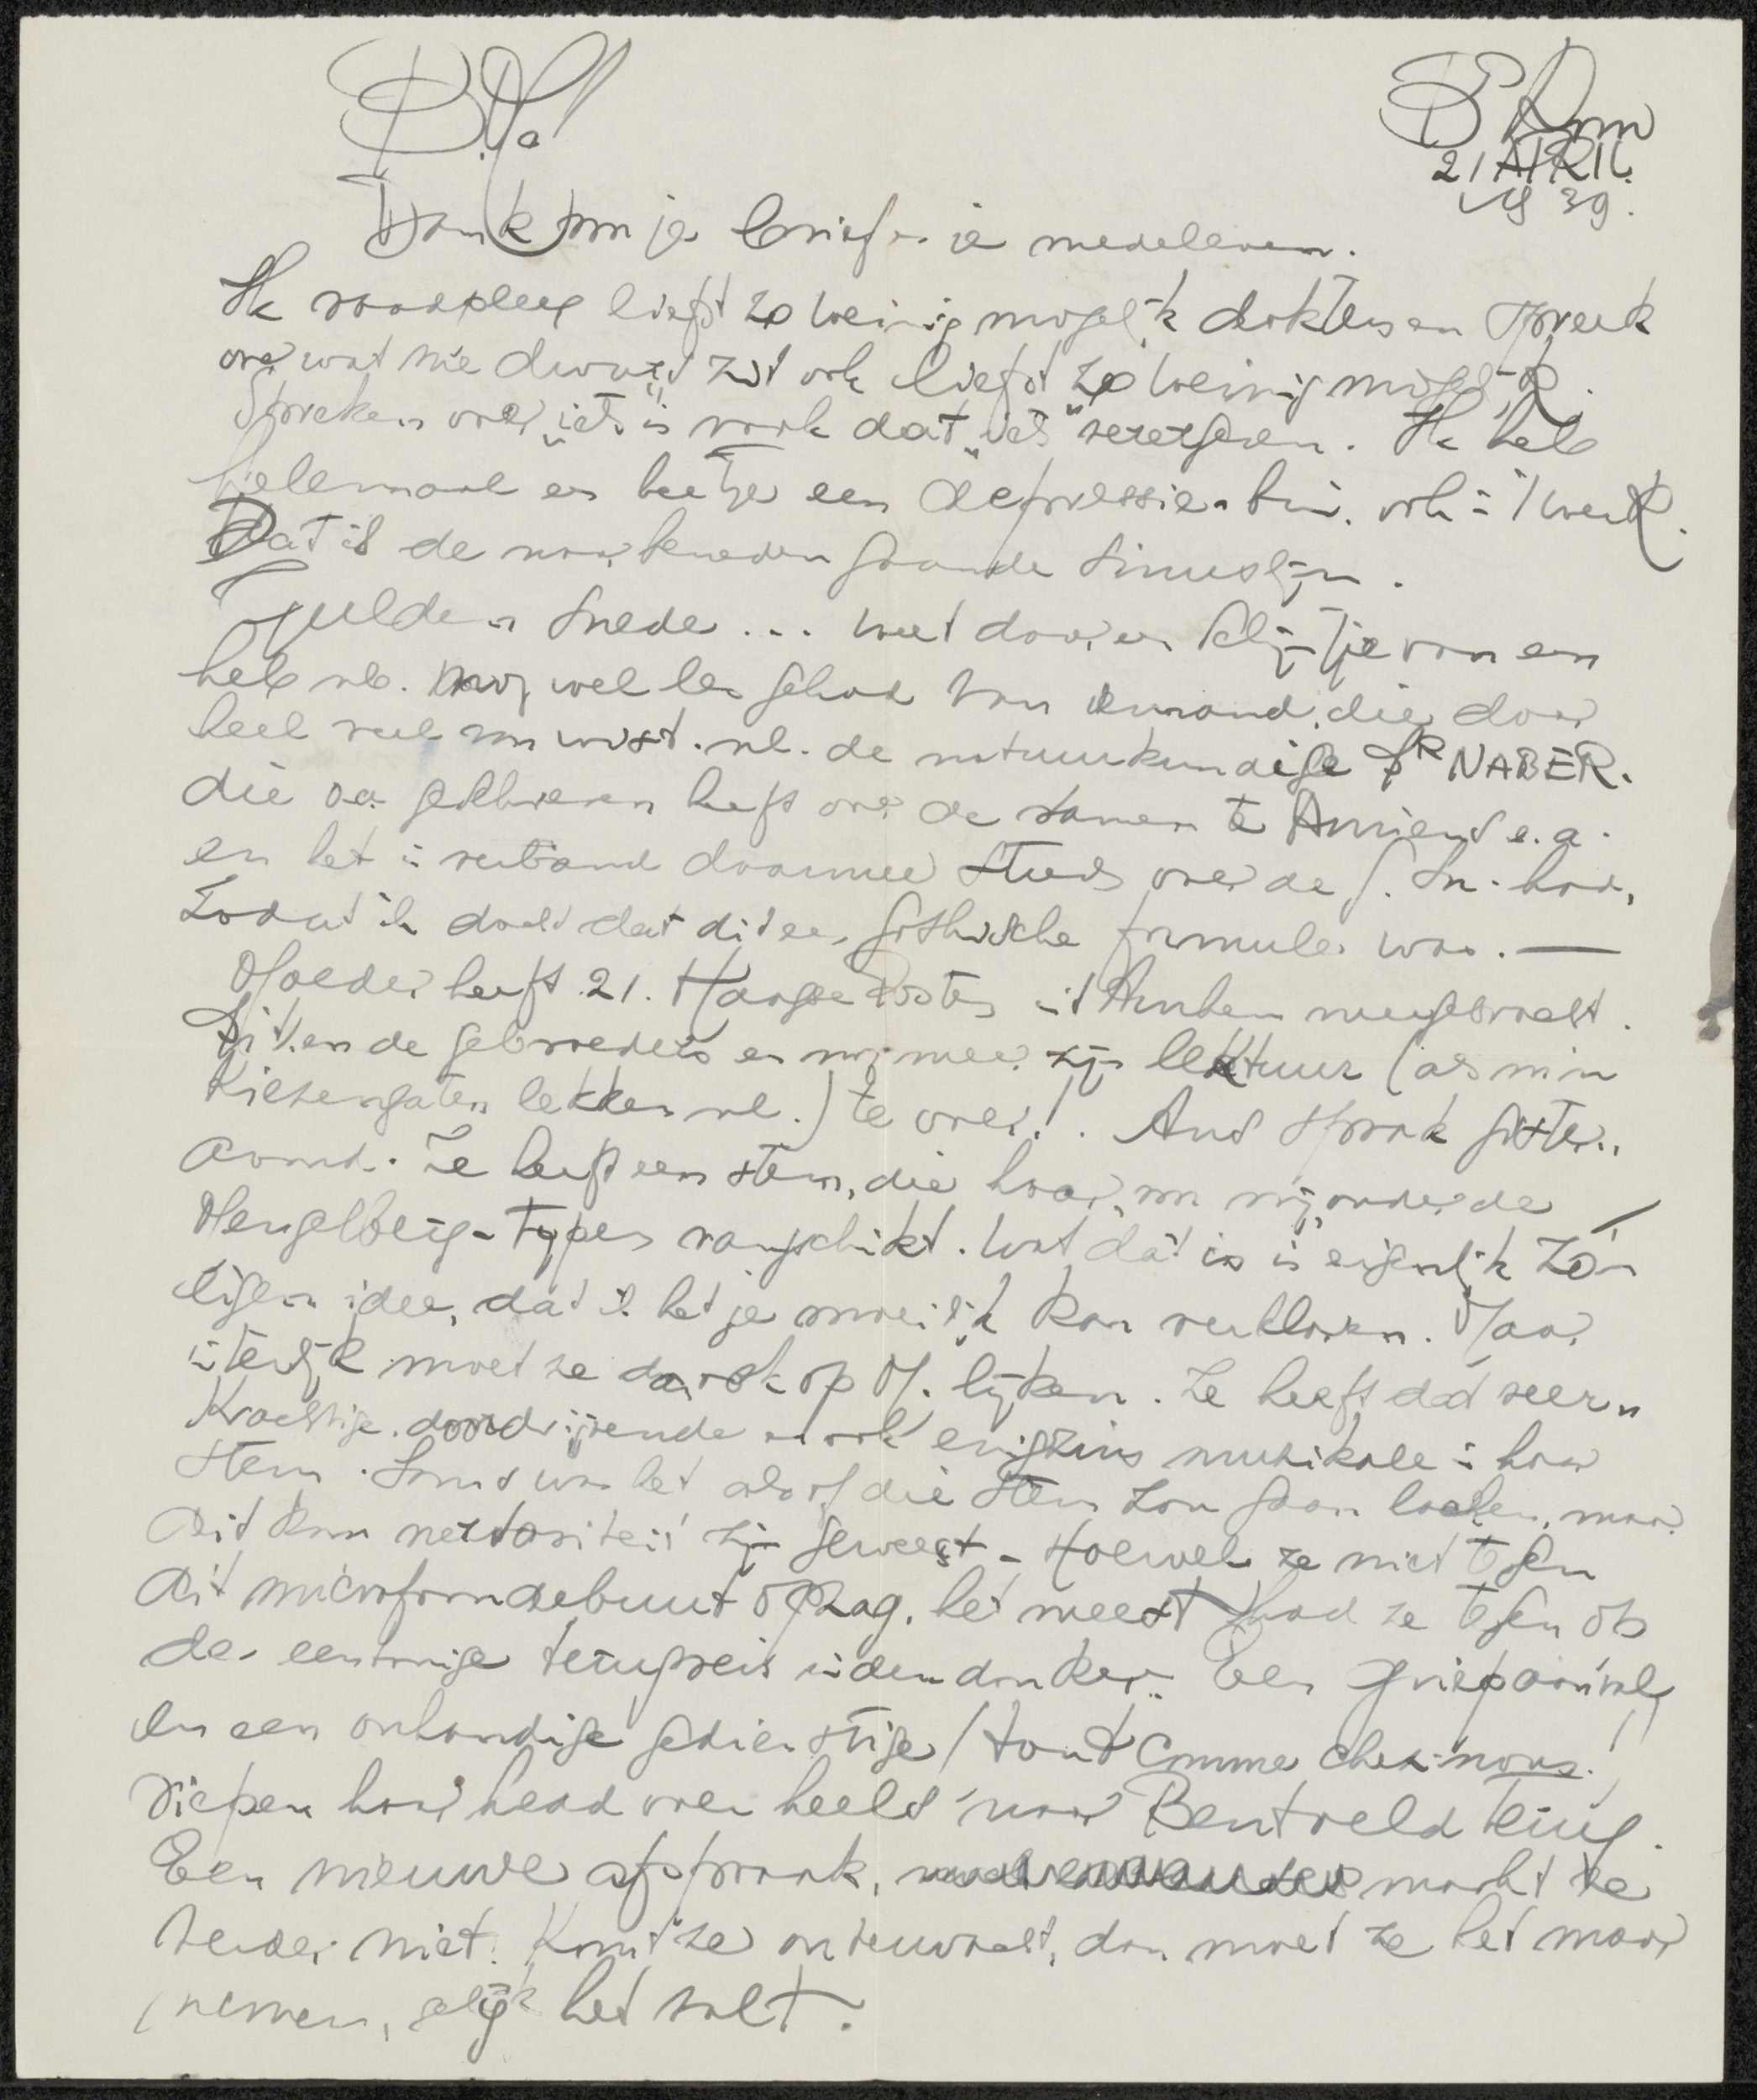 B.Da!
B Dm
21 APRIL
19 39.
Dank om je brief en je medeleven.
Ik raadpleeg liefst zo weinig mogelijk dokters en spreek
over wat me dwars zit ook liefst zo weinig mogelijk.
Spreken over "iets" is vaak dat "iets" verergeren. Ik heb
helemaal een beetje een depressie en ben ook in 't werk.
Dat is de naar beneden gaande sinuslijn.
Gulden Snede ... weet daar een klein tje van en
heb nl. nog wel les gehad van iemand, die daar
heel veel van wist. nl. de natuurkundige Dr NABER.
die o.a. geschreven heeft over de ramen te Amiens e.a.
en het in verband daarmee steeds over de G. Sn. had,
zodat ik dacht dat dit een Gothische formule was. —
Moeder heeft 21. Haagse Posten uit Arnhem meegebracht.
Dit en de gebroeders en mij meer zijn lektuur (als mijn
kiezengaten lekken nl.) te over! . Ans sprak gister-
avond. Ze heeft een stem, die haar "voor mij onder de
Mengelberg-typen rangschikt. Wat dát is is eigenlijk zó'n
eigen idee, dat ik het je moeilijk kan verklaren. Maar
uiterlijk moet ze daar ook op M. lijken. Ze heeft dat veer'n
krachtige, doordrijvende en ook enigszins muzikale in haar
stem. Soms was het alsof die stem zou gaan lachen, maar
dit kan nervositeit zijn geweest - Hoewel ze niet tegen
dit microfoondebuut opzag, het meest had ze tegen op
de eentonige terugreis in den donker. Een griepaanval
en een onhandige gedienstige (tout comme chez-nous!)
riepen haar head over heels naar Bentveld terug.
Een nieuwe afspraak, maakt ze
verder niet. Komt ze onverwacht, dan moet ze het maar
nemen, gelijk het valt.